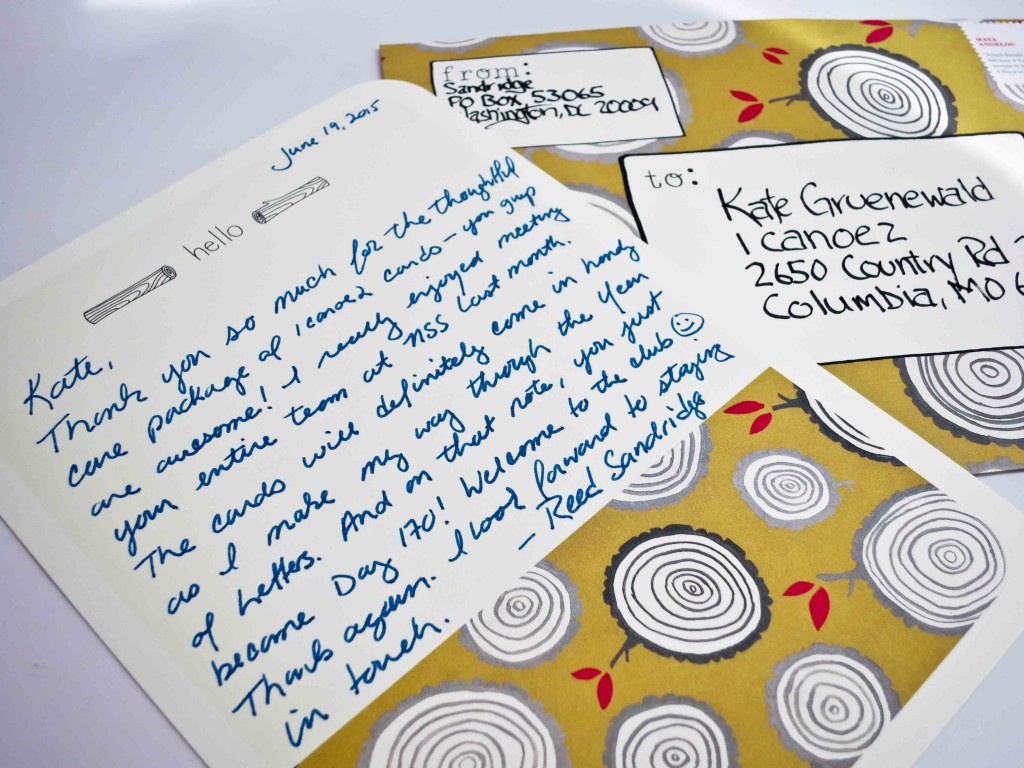 June 19, 2015
hello
Kate,
Thank you so much for the thoughtful
care package of 1canoe2 cards - you guys
are awesome! I really enjoyed meeting
your entire team at NSS last month.
The cards will definitely come in handy
as I make my way through the Year
of Letters. And on that note, you just
became Day 170! Welcome to the club ☺
Thanks again. I look forward to staying
in touch.
- Reed Sandridge
from:
Sandridge
PO Box 53065
Washington, DC 20009
to:
Kate Gruenewald
1 canoe2
2650 County Rd
Columbia, MO
MAYA
ANGELOU